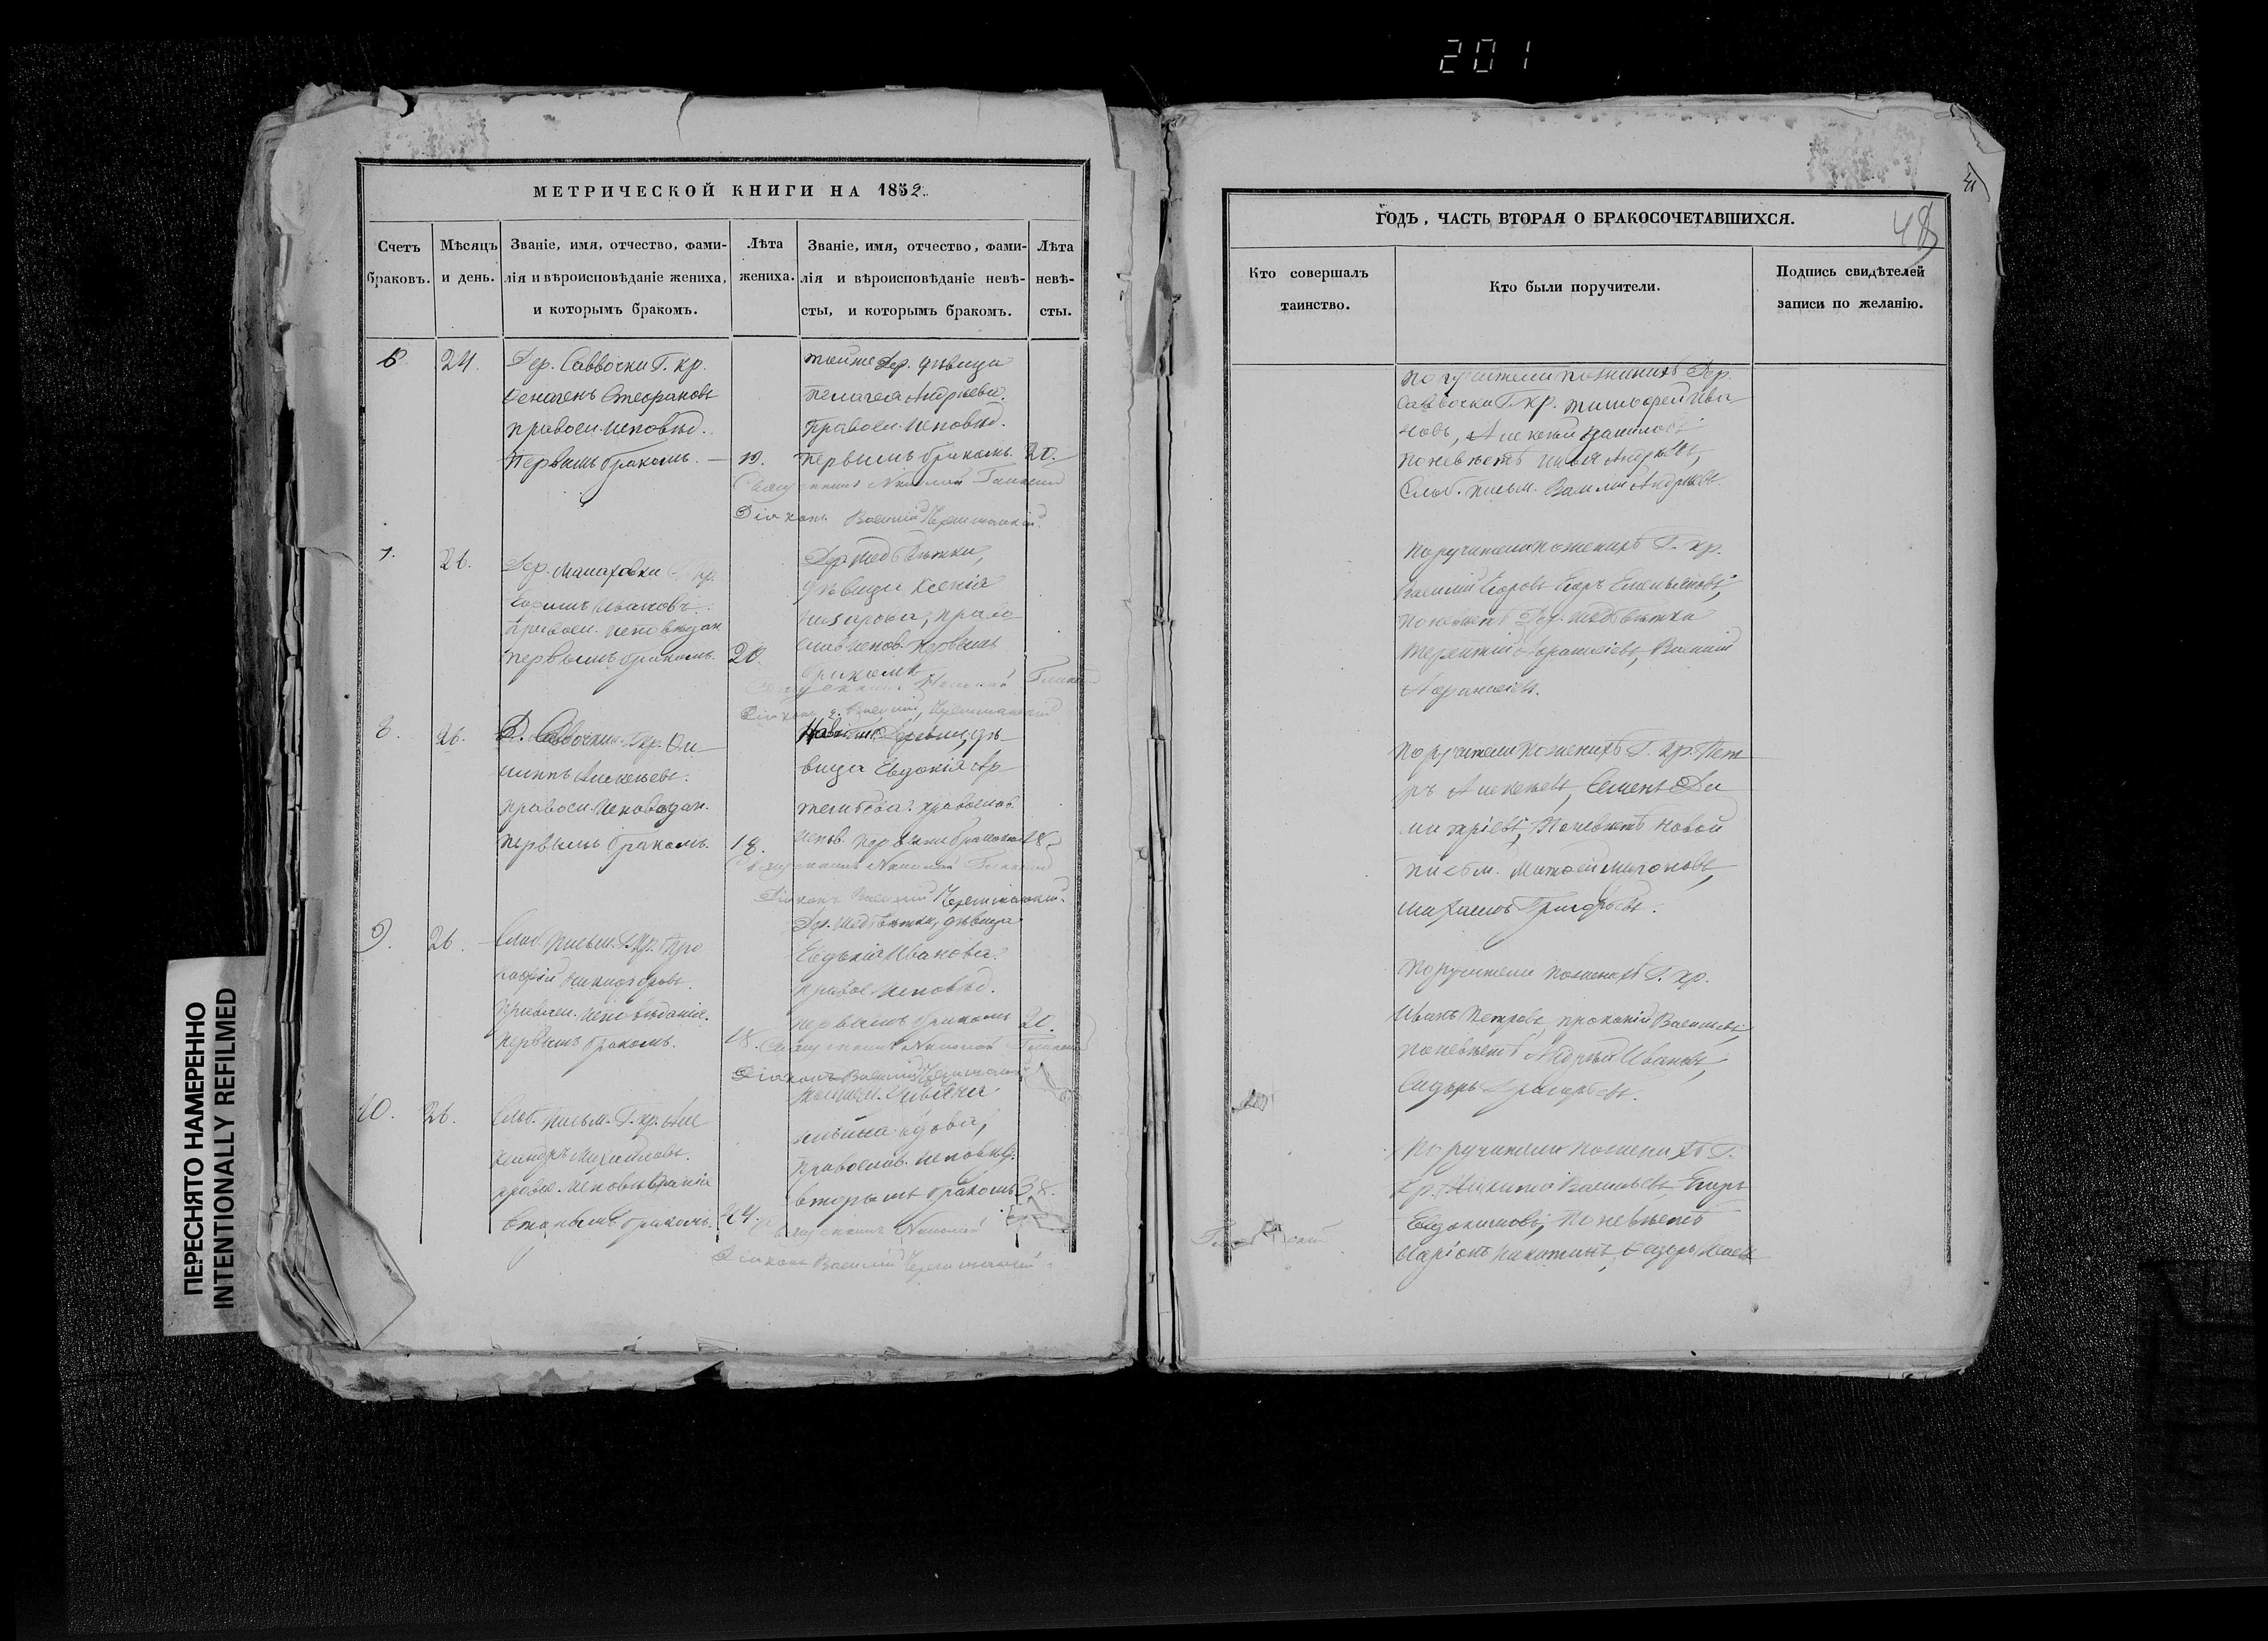 201
МЕТРИЧЕСКОЙ КНИГИ НА 1852.
Счетъ браковъ.
Мѣсяцъ и день.
Званіе, имя, отчество, фами-
лія и вѣроисповѣданіе жениха,
и которымъ бракомъ.
Лѣта
жениха.
Званіе, имя, отчество, фами-
лія и вѣроисповѣданіе невѣ-
сты, и которымъ бракомъ.
Лѣта
невѣ-
сты.
6 24.
Дер. Саввочки Г. кр.
Стефановъ
правосл. исповѣд.
первымъ бракомъ. — 19.
тойже дер. дѣвица
Пелагея Андріева.
правосл. исповѣд.
первымъ бракомъ. 20.
Священникъ Николай
Діаконъ Василій
7. 26.
Дер. кр.
Ивановъ.
правосл. исповѣдан.
первымъ бракомъ. 20.
Дер. Медвѣжки,
дѣвица Ксенія
Назарова, право
слав. испов. первымъ
бракомъ
Священникъ Николай
Діаконъ Василій
8. 26.
Д. Саввочки Г. кр. Фи
липпъ Алексѣевъ.
правосл. исповѣдан.
первымъ бракомъ. 18.
деревни, дѣ
вица Евдокія Ар
православ.
испов. первымъ бракомъ 18
Священникъ Николай
Діаконъ Василій
9. 26.
Слоб. письм. Г. кр. Про
кофій Никифоровъ.
правосл. исповѣданія.
первымъ бракомъ. 18.
Дер. Медвѣжки, дѣвица
Евдокія Иванова.
правос. исповѣд.
первымъ бракомъ 20.
Священникъ Николай
Діаконъ Василій
10. 26.
Слоб. письм. Г. кр. Але
ксандръ Михайловъ.
правос. исповѣданія
вторымъ бракомъ. 44.
вдова,
православ. исповѣд.
вторымъ бракомъ 38.
Священникъ Николай
Діаконъ Василій
48
ГОДЪ, ЧАСТЬ ВТОРАЯ О БРАКОСОЧЕТАВШИХСЯ.
Кто совершалъ
таинство.
Кто были поручители.
Подпись свидѣтелей
записи по желанію.
Поручители по женихѣ Дер.
Саввочки Г. кр. Тимофей Ива
новъ, Алексѣй
по невѣстѣ Илья Андрѣевъ,
Слоб. письм. Василій Андрѣевъ.
Поручители по женихѣ Г. кр.
Василій Егоровъ Егоръ Емельяновъ,
по невѣстѣ Дер. Медвѣжки
Терентій Афанасіевъ, Василій
Афанасіевъ.
Поручители по женихѣ Г. кр. Пет
ръ Алексѣевъ, Семенъ Ди
митріевъ, По невѣстѣ новой
письм. Матвей Мироновъ,
Михаилъ Григорьевъ.
Поручители по женихѣ Г. кр.
Иванъ Петровъ, Прокопій Васильевъ,
по невѣстѣ Андрей Ивановъ,
Сидоръ Григорьевъ.
Поручители по женихѣ Г.
кр. Никита Васильевъ, Егоръ
Евдокимовъ, по невѣстѣ
Иларіонъ Никитинъ,
ПЕРЕСНЯТО НАМЕРЕННО
INTENTIONALLY REFILMED